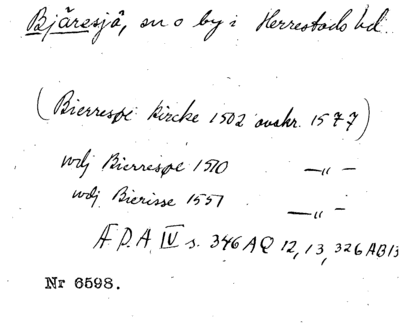 Bjäresjö, sn o by i Herrestads hd.
(Bierrespe kircke 1502 avskr. 1577)
wdj Bierrespe 1510 —„—
wdj Bierisse 1551 —„—
Æ D.A. IV s. 346 AQ 12, 13, 326 AB 13
Nr 6598.